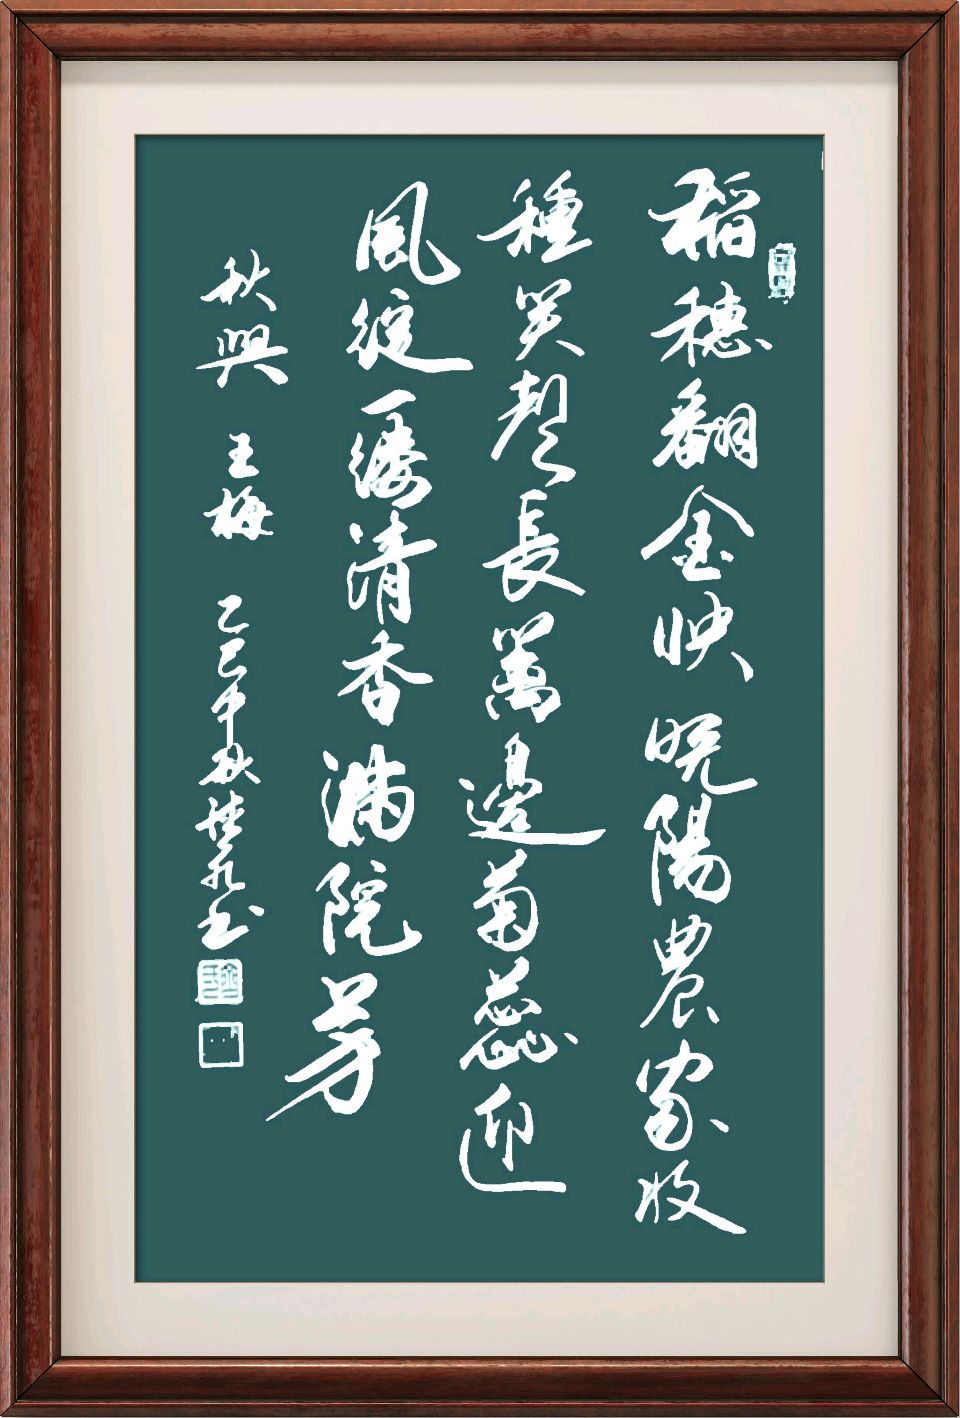 稻穗翻金映晚陽農家收
種笑聲長篱邊菊蕊迎
風綻一縷清香滿院芳
秋興 王梅 乙巳中秋 书